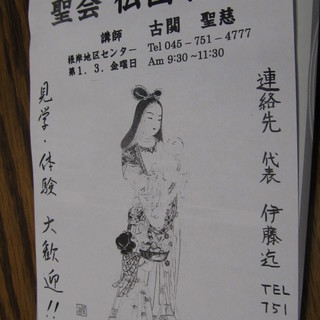 聖会 仏画
講師 古関 聖慈
根岸地区センター Tel 045-751-4777
第1.3.金曜日 Am 9:30~11:30
連絡先 代表 伊藤迄
TEL
751
見学・体験 大歓迎!!